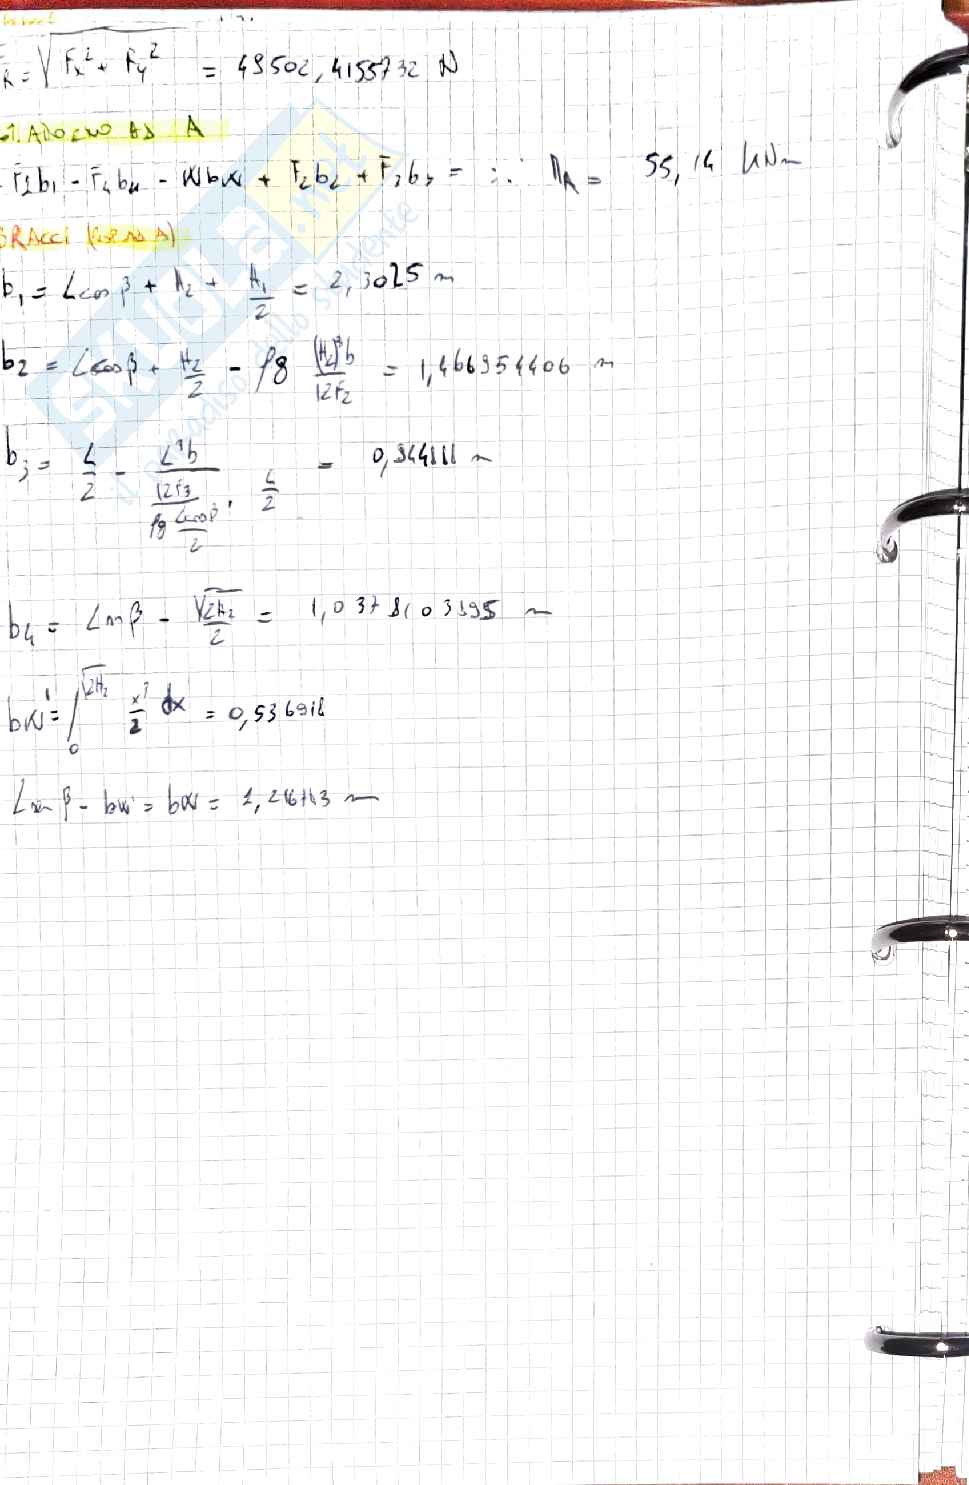 R = √(Fx² + Fy²) = 49502,4155732 N
ADORNO AD A
- F1b1 - F4b4 - WbW + F2b2 + F3b3 = ∴ MA = 55,14 kNm
BRACCI (ASSE AD A)
b1 = Lcosβ + H2 + H1/2 = 2,3025 m
b2 = Lcosβ + H2/2 - ρg (H2)³b/12F2 = 1,466954406 m
b3 = L/2 - L³b/12F3 ρg Lcosβ/2 · L/2 = 0,944111 m
b4 = Lsinβ - √2H2/2 = 1,0378103995 m
bW' = ∫0 √2H2 x²/2 dx = 0,536912
Lsinβ - bW' = bW =
SKUOLA.net
il paradiso dello studente